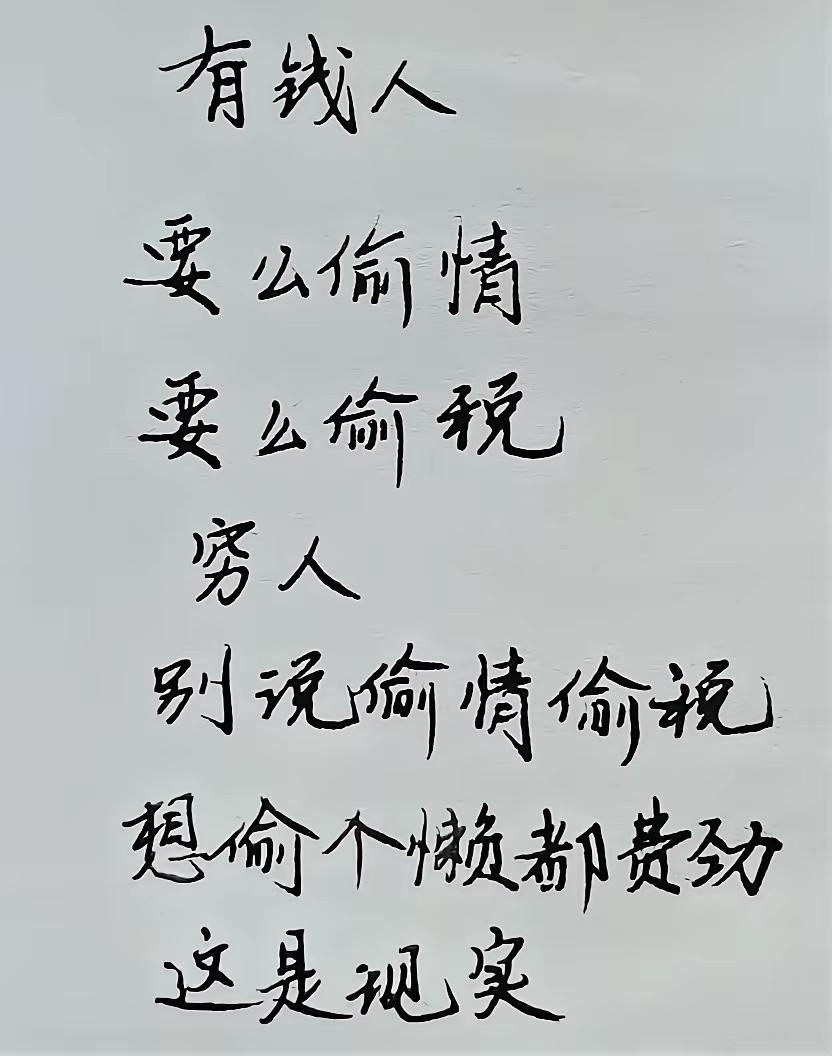 有钱人
要么偷情
要么偷税
穷人
别说偷情偷税
想偷个懒都费劲
这是现实